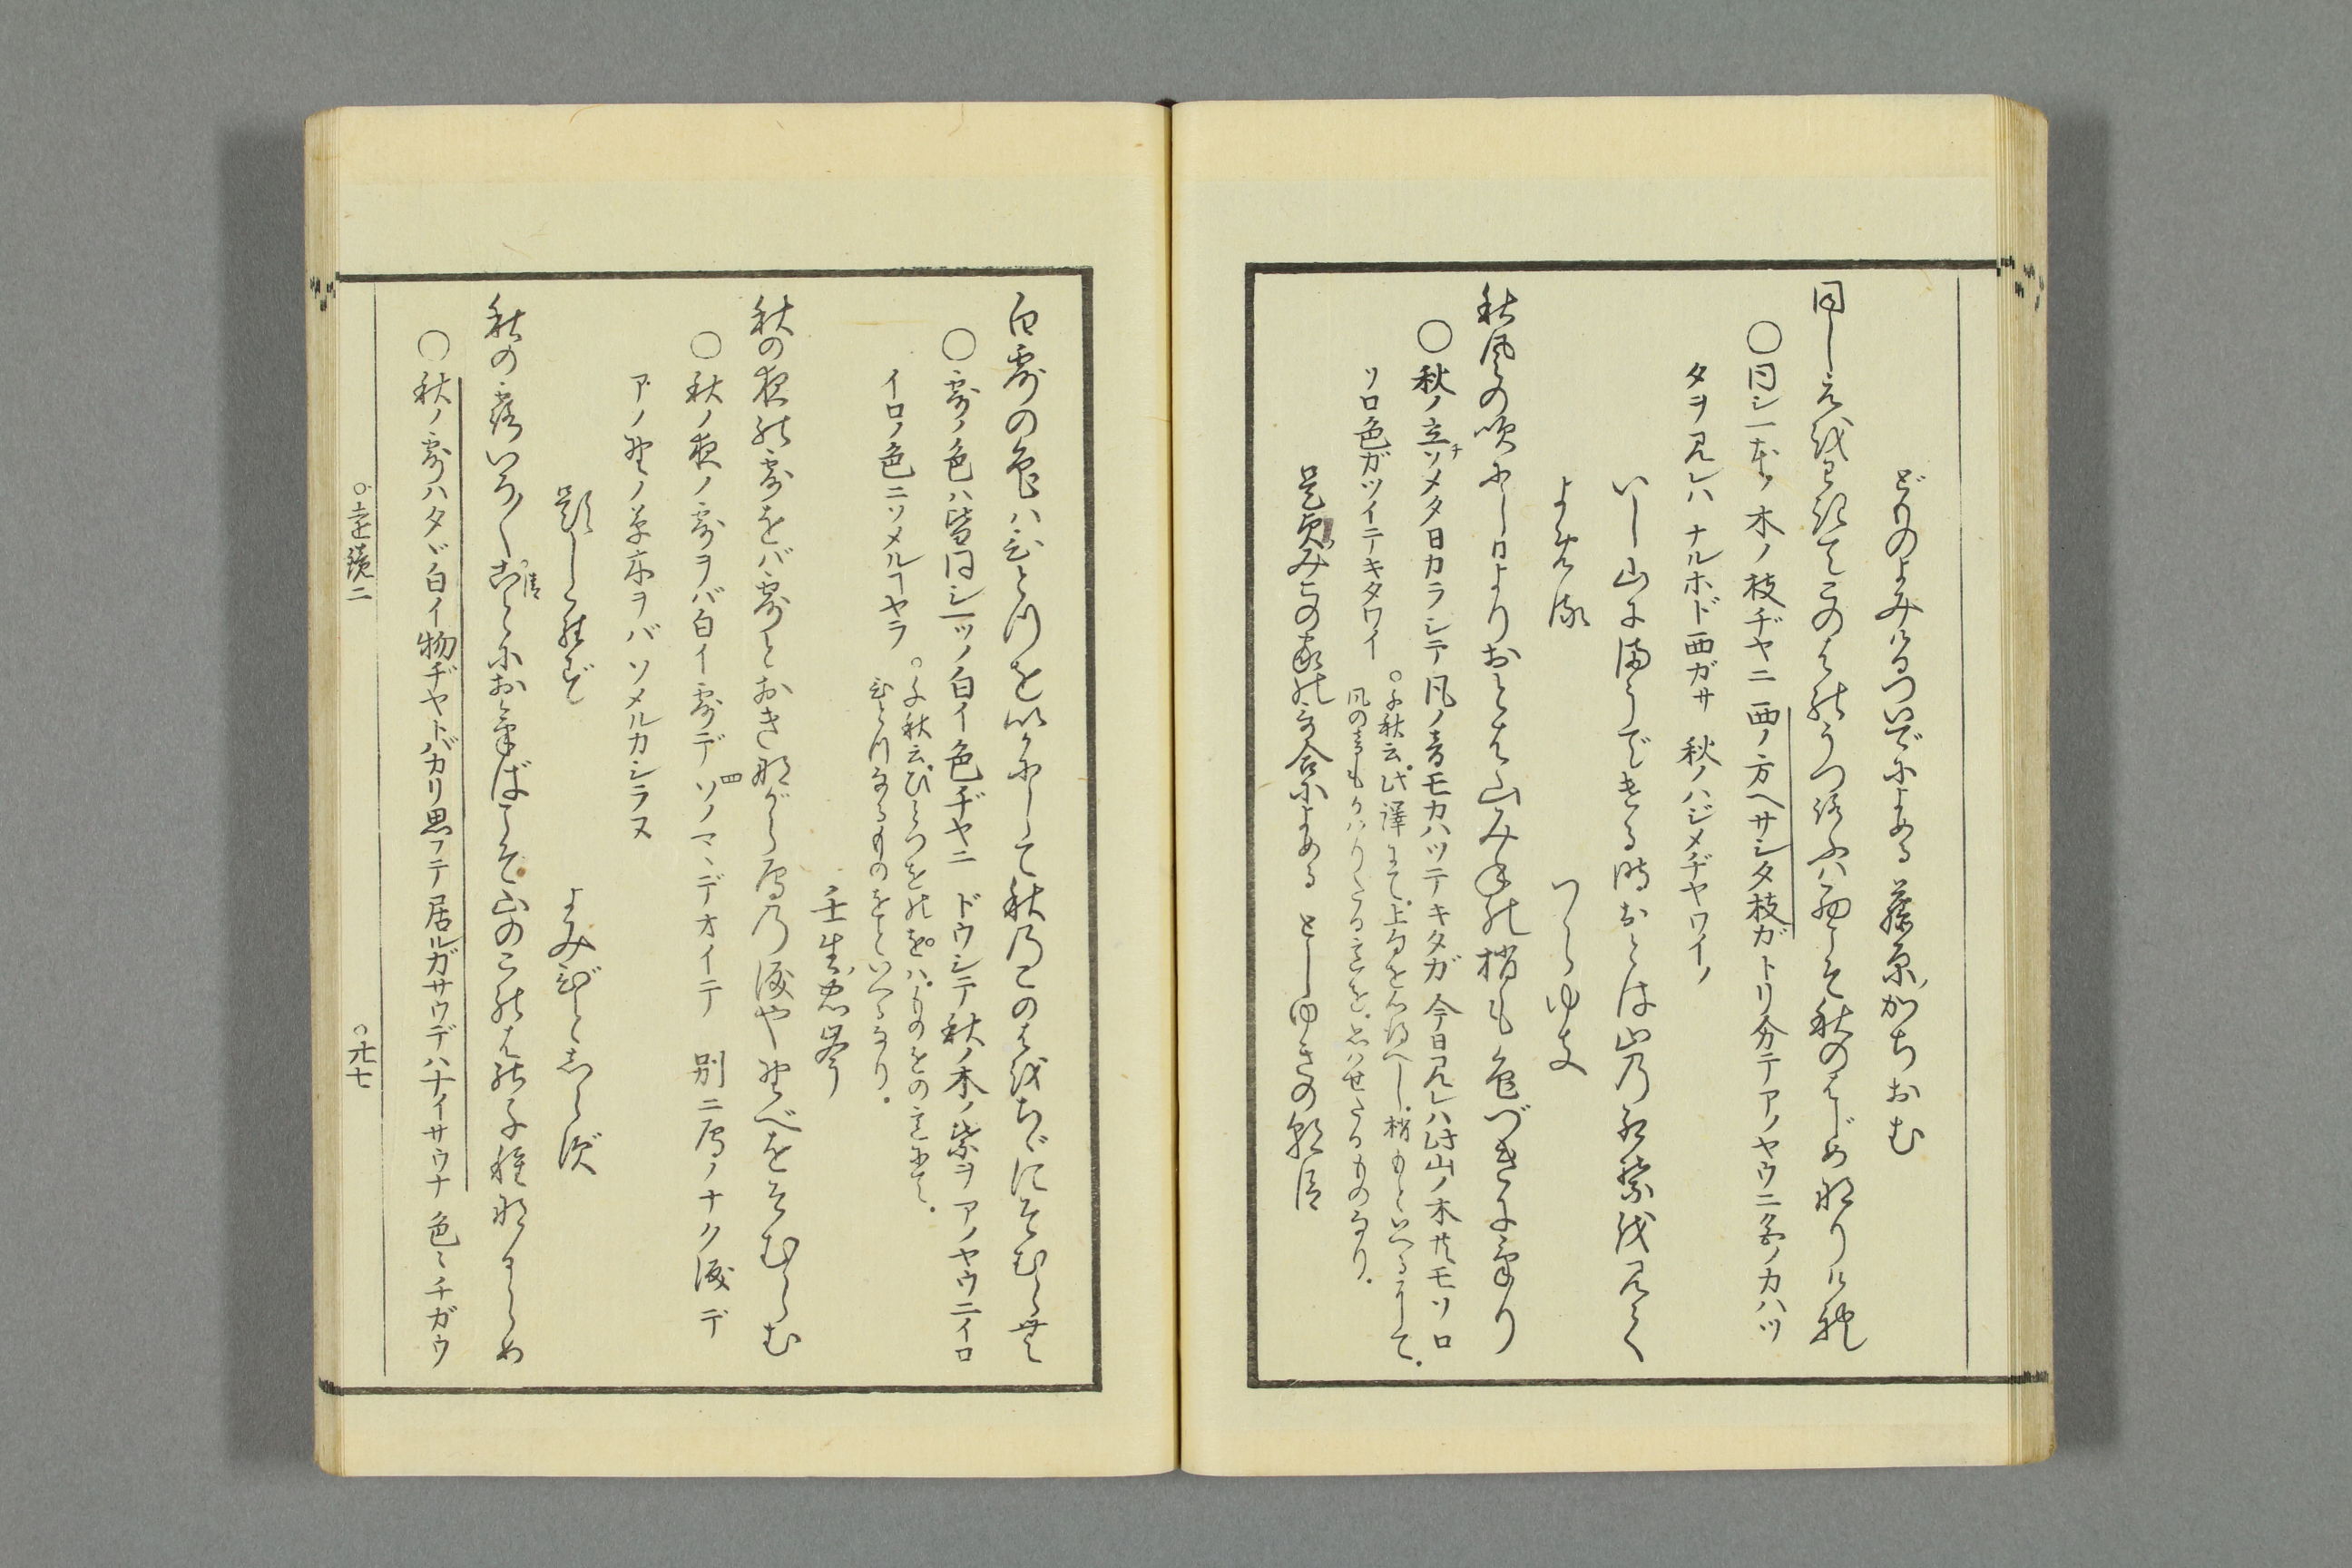 どりのよみけるついでによめる 藤原かちおむ
同じえをわきてこのはのうつろふは西こそ秋のはじめなりけれ
○同シ一本ノ木ノ枝ヂヤニ 西ノ方ヘサシタ枝ガトリ分テアノヤウニ色ノカハツ
タヲ見レハ ナルホド西ガサ 秋ノハジメヂヤワイノ
いし山にまうでける時おとは山の紅葉を見て
よめる つらゆき
秋風の吹にし日よりおとは山みねの梢も色づきにけり
○秋ノ立チソメタ日カラシテ風ノ音モカハツテキタガ 今日見レハ此山ノ木共モソロ
ソロ色ガツイテキタワイ
○千秋云、此譯にて、上句を心得へし、梢もといへるにして、
風の音もかはりたる意を、思はせたるもの也り、
是貞みこの家の哥合によめる としゆきの朝臣
白露の色はひとつをいかにして秋のこのはをちゞにそむらむ
○露ノ色ハ皆同シ一ツノ白イ色ヂヤニ ドウシテ秋ノ木ノ葉ヲ アノヤウニイロ
イロノ色ニソメルヿヤラ
○千秋云、ひとつをのをは、ものをの意にて、
ひとつなるものをといへるなり、
壬生忠岑
秋の夜の露をば露とおきながら鴈の涙や野べをそむらむ
○秋ノ夜ノ露ヲバ白イ露デ ソノマヽデオイテ 別ニ鴈ノナク涙デ
アノ野ノ草木ヲバ ソメルカシラヌ
題しらず よみびとしらず
秋の露いろ〳〵ことにおけばこそ山のこのはの千種なるらめ
○秋ノ露ハタヾ白イ物ヂヤトバカリ思フテ居ルガサウデハナイサウナ 色々チガウ
○遠鏡二 ○廿七